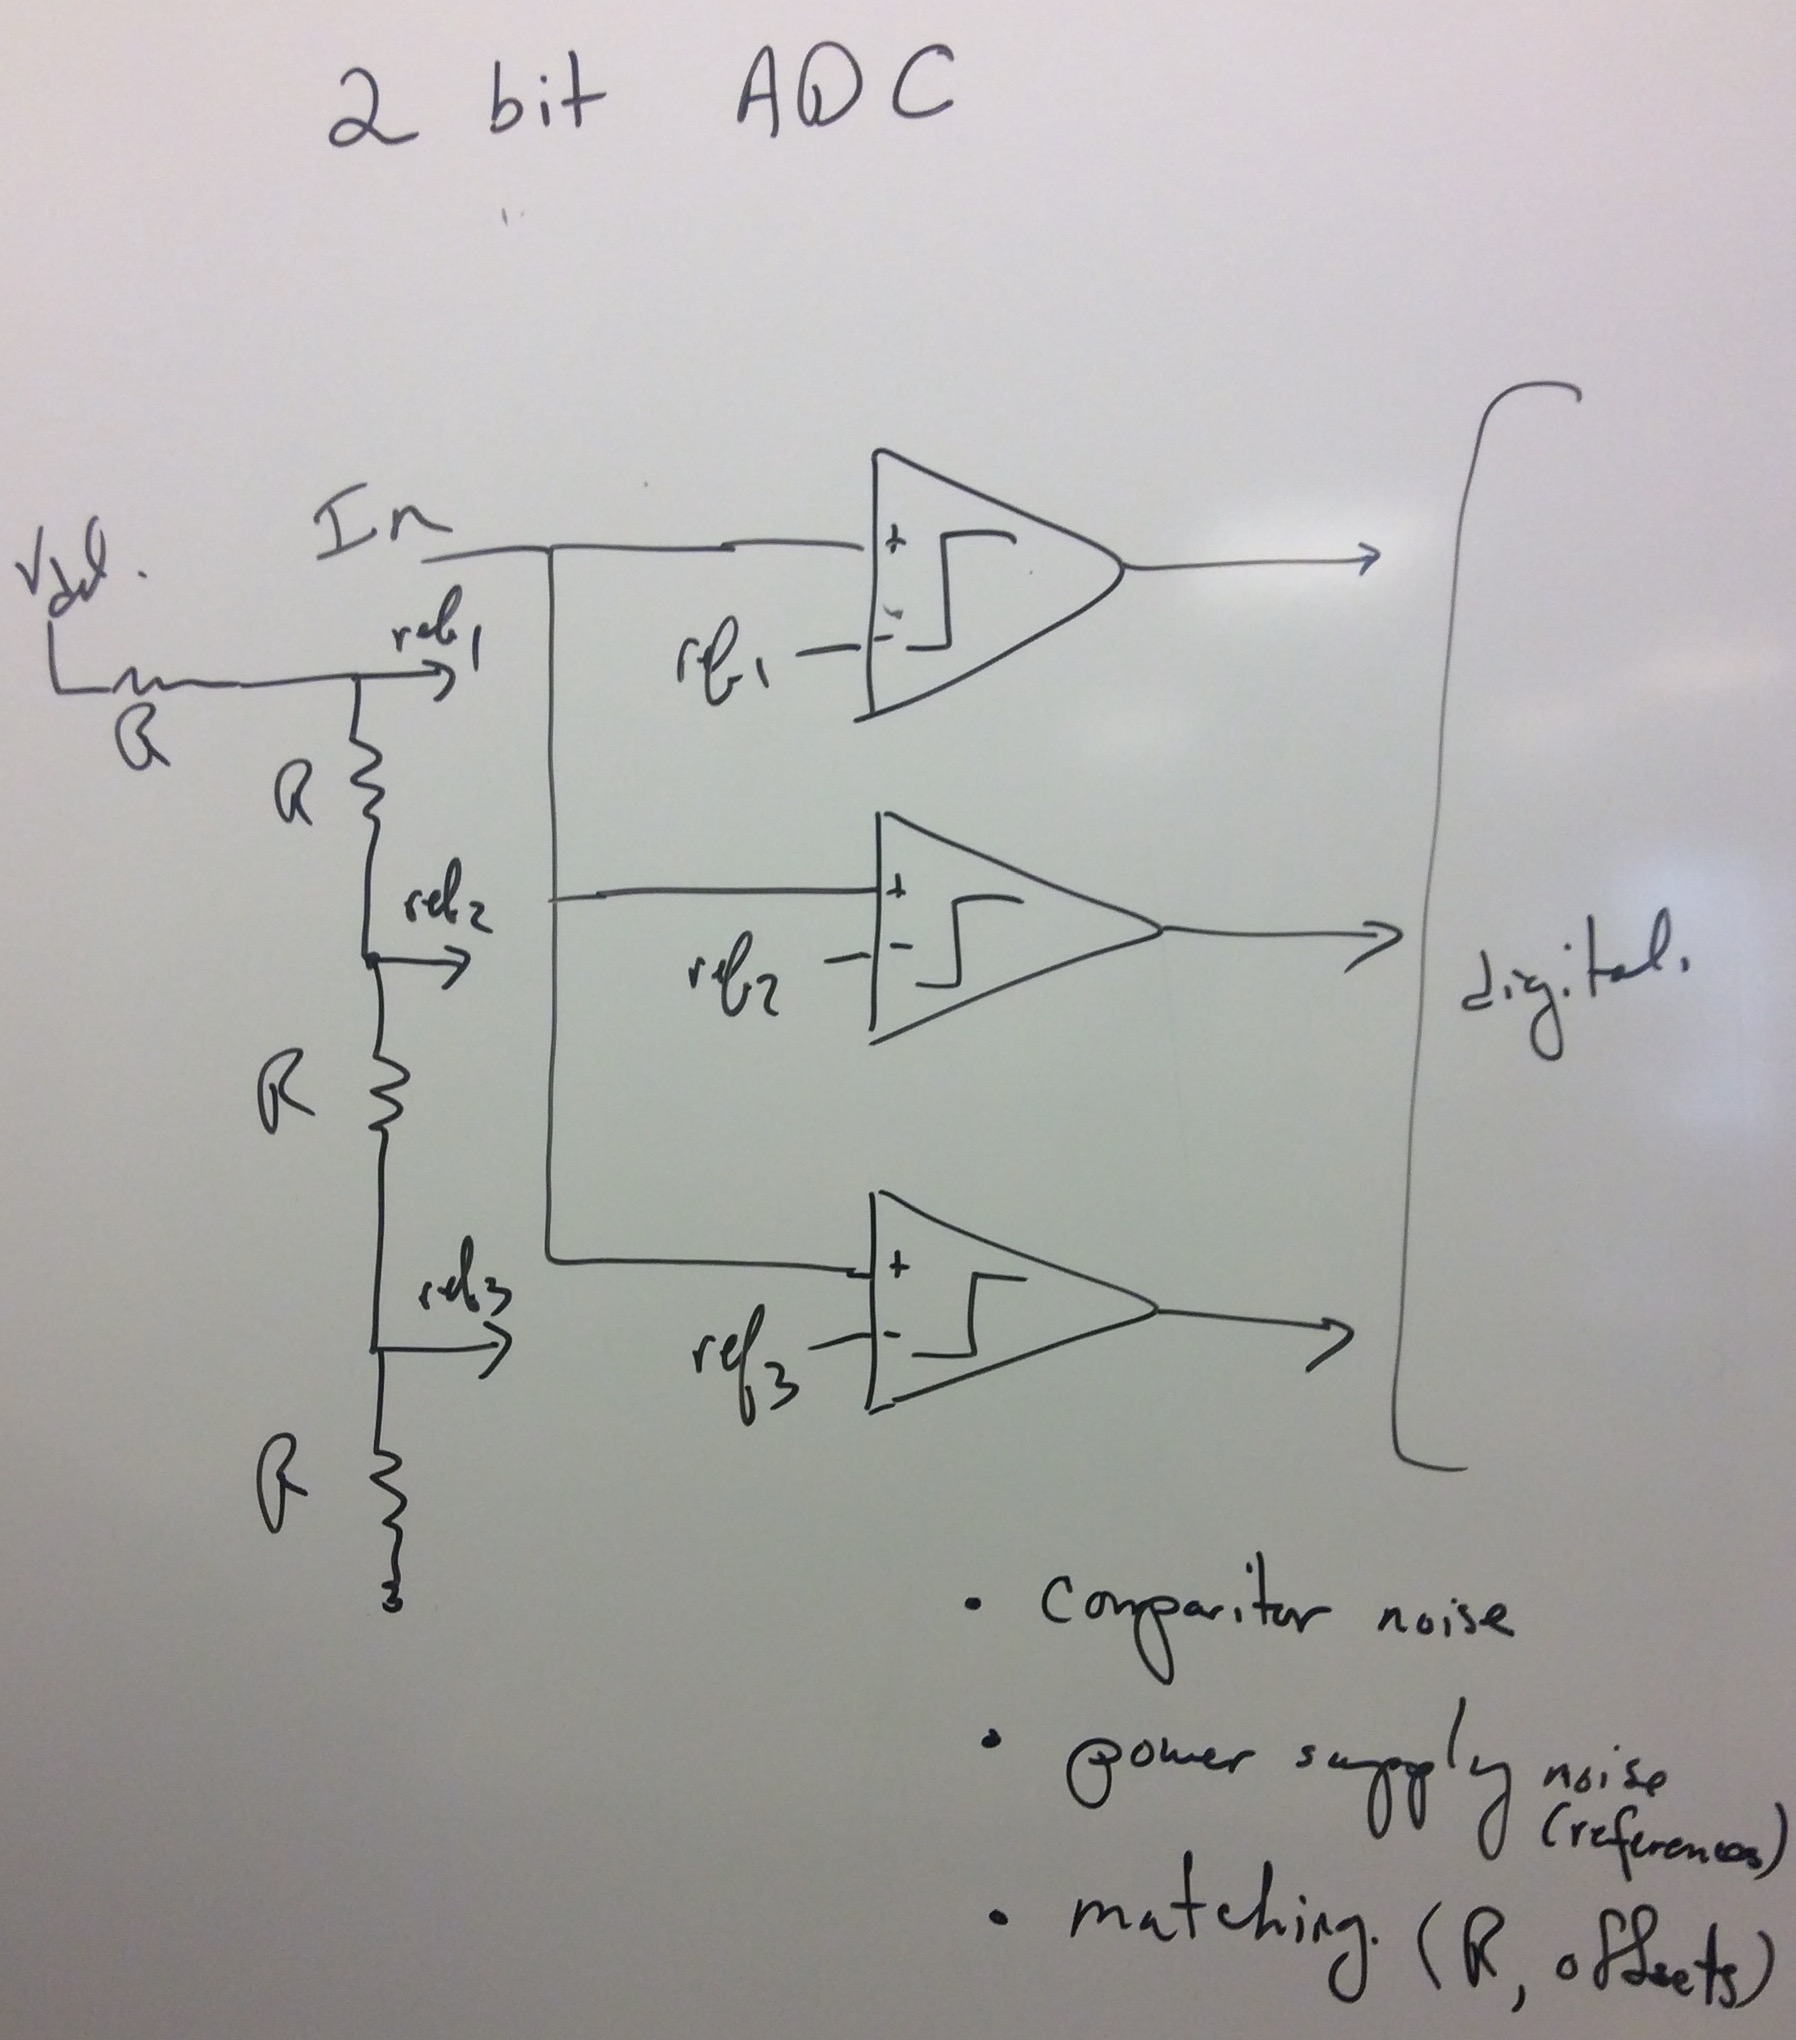 2 bit ADC
In
Vdd.
ref1
R
R
ref1
+
-
ref2
R
+
-
ref2
digital.
ref3
R
+
-
ref3
• Comparitor noise
• power supply noise
(references)
• matching. (R, offsets)